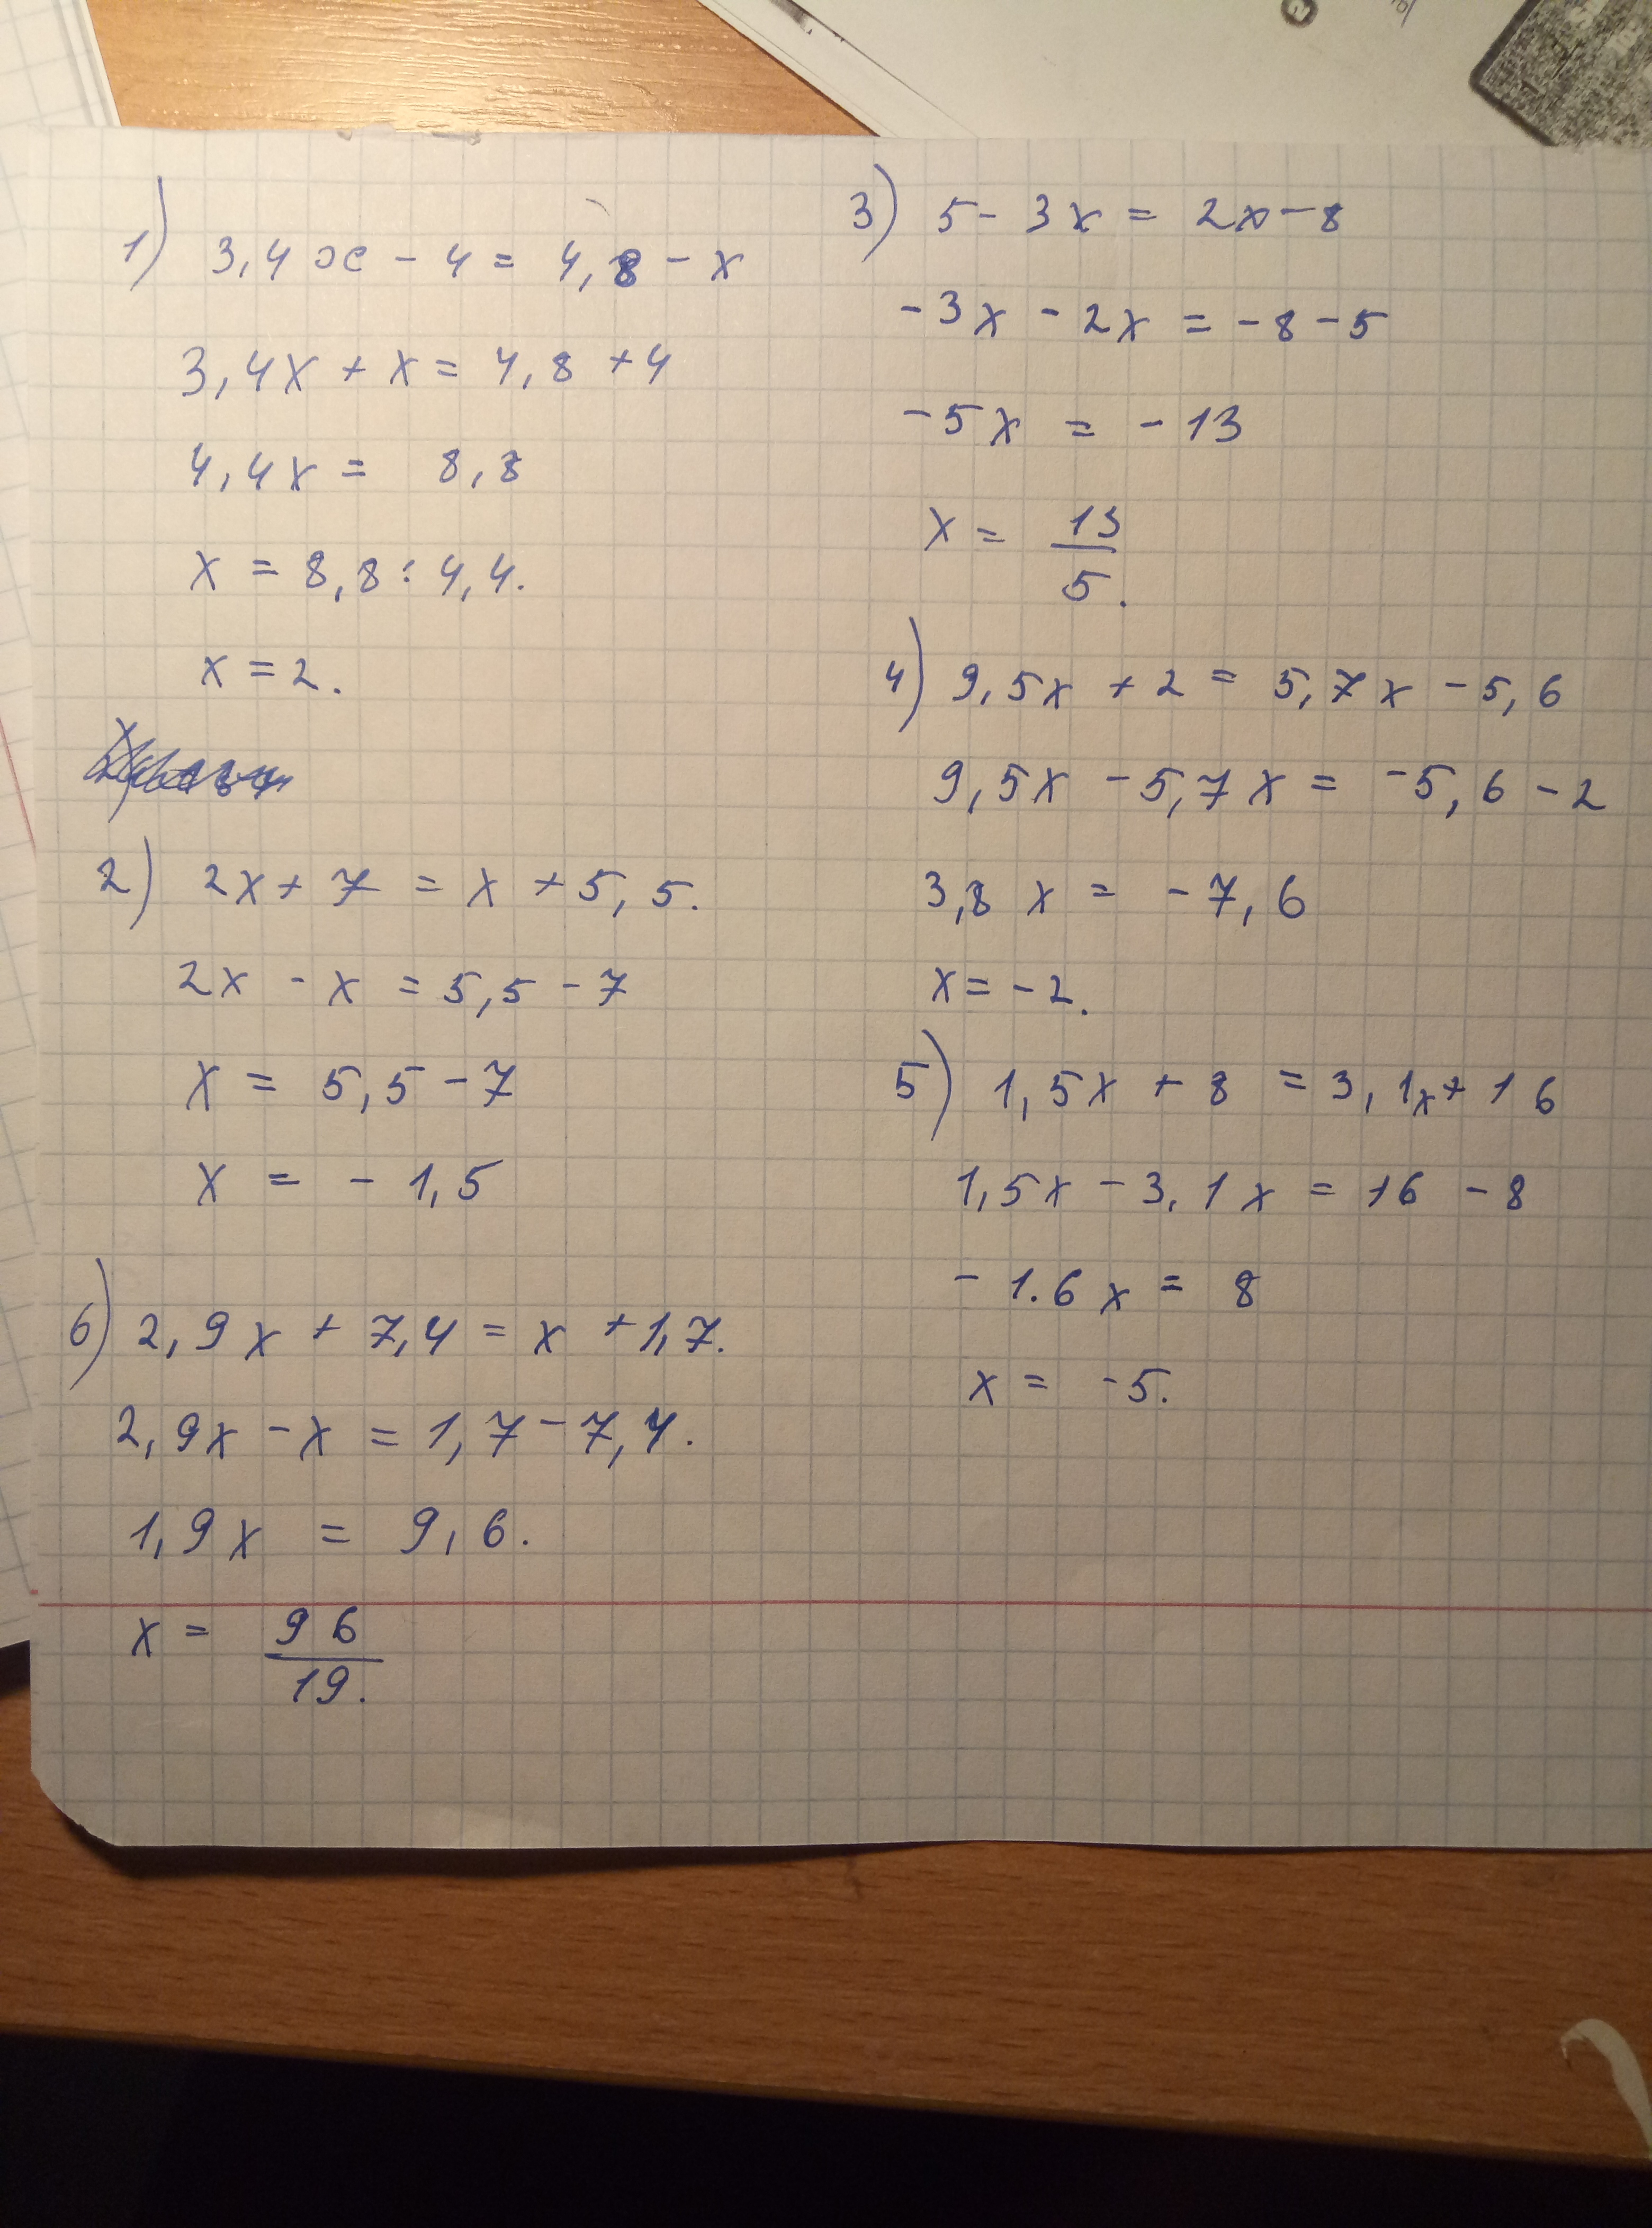 1) 3,4x - 4 = 4,8 - x
3,4x + x = 4,8 + 4
4,4x = 8,8
x = 8,8 : 4,4.
x = 2.
2) 2x + 7 = x + 5,5.
2x - x = 5,5 - 7
x = 5,5 - 7
x = - 1,5
6) 2,9x + 7,4 = x + 1,7.
2,9x - x = 1,7 - 7,4.
1,9x = 9,6.
x = 96/19.
3) 5 - 3x = 2x - 8
-3x - 2x = -8 - 5
-5x = -13
x = 13/5.
4) 9,5x + 2 = 5,7x - 5,6
9,5x - 5,7x = -5,6 - 2
3,8x = -7,6
x = -2.
5) 1,5x + 8 = 3,1x + 16
1,5x - 3,1x = 16 - 8
-1.6x = 8
x = -5.